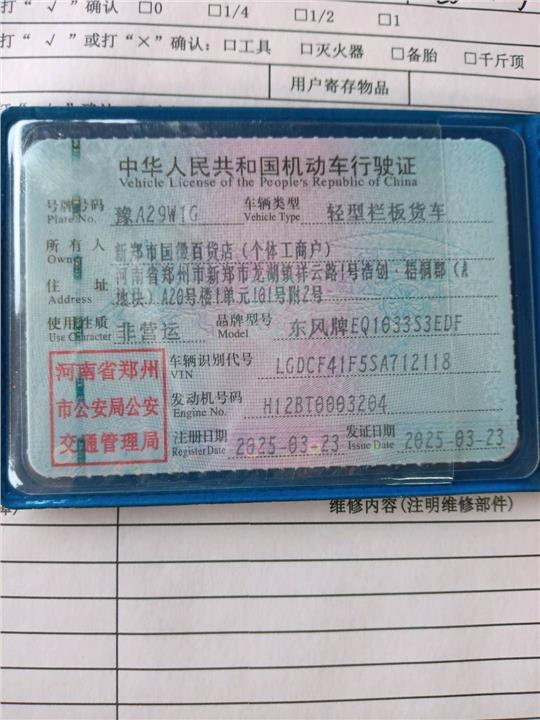 打“√”确认 □0 □1/4 □1/2 □1
打“√”或打“×”确认：□工具 □灭火器 □备胎 □千斤顶
用户寄存物品
中华人民共和国机动车行驶证
Vehicle License of the People's Republic of China
号牌号码 豫A29W1G 车辆类型 轻型栏板货车
Plate No. Vehicle Type
所有人 新郑市国微百货店（个体工商户）
Owner
河南省郑州市新郑市龙湖镇祥云路1号浩创·梧桐郡（A
住址 地块）A20号楼1单元101号附2号
Address
使用性质 非营运 品牌型号 东风牌EQ1033S3EDF
Use Character Model
河南省郑州 车辆识别代号 LGDCF41F5SA712118
VIN
市公安局公安 发动机号码 H12BT0003204
Engine No.
交通管理局 注册日期 2025-03-23 发证日期 2025-03-23
Register Date Issue Date
维修内容(注明维修部件)